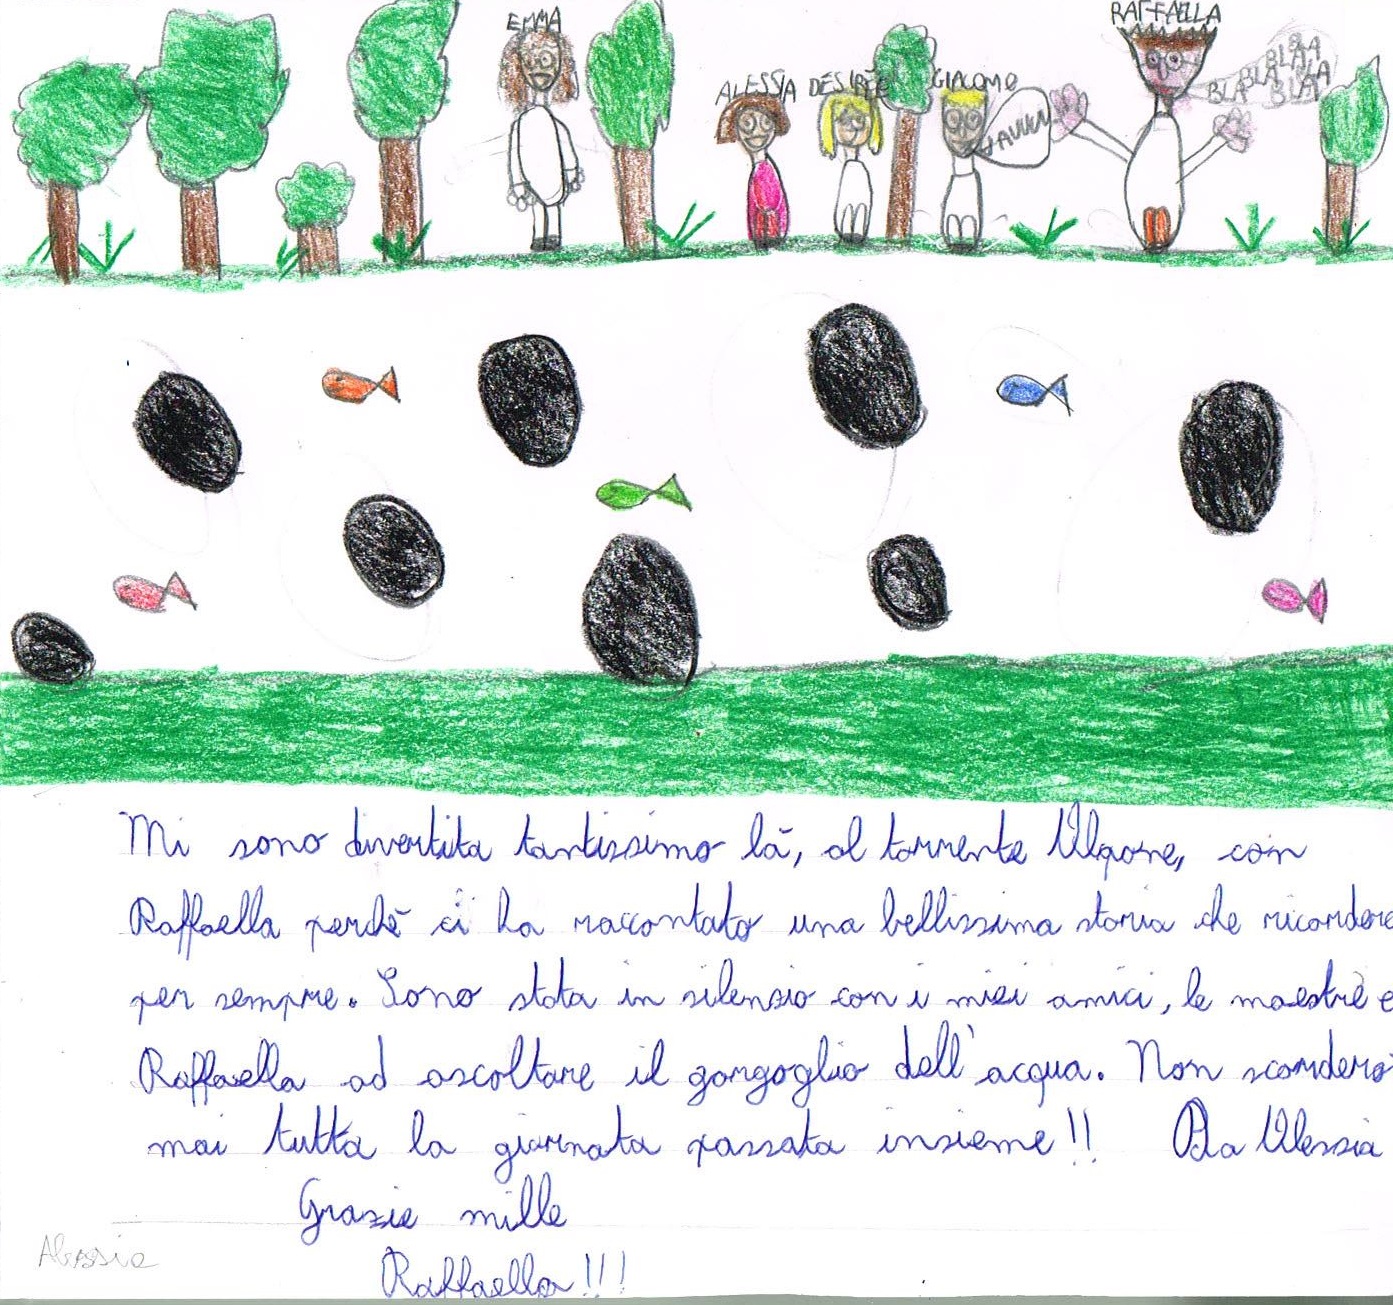 EMMA
RAFFAELLA
ALESSIA DESIRÈE GIACOMO
BLA BLA BLA BLA BLA
Mi sono divertita tantissimo là, al torrente Algone, con
Raffaella perchè ci ha raccontato una bellissima storia che ricorderò
per sempre. Sono stata in silenzio con i miei amici, le maestre e
Raffaella ad ascoltare il gorgoglio dell'acqua. Non scorderò
mai tutta la giornata passata insieme!! Da Alessia
Grazie mille
Alessia
Raffaella!!!